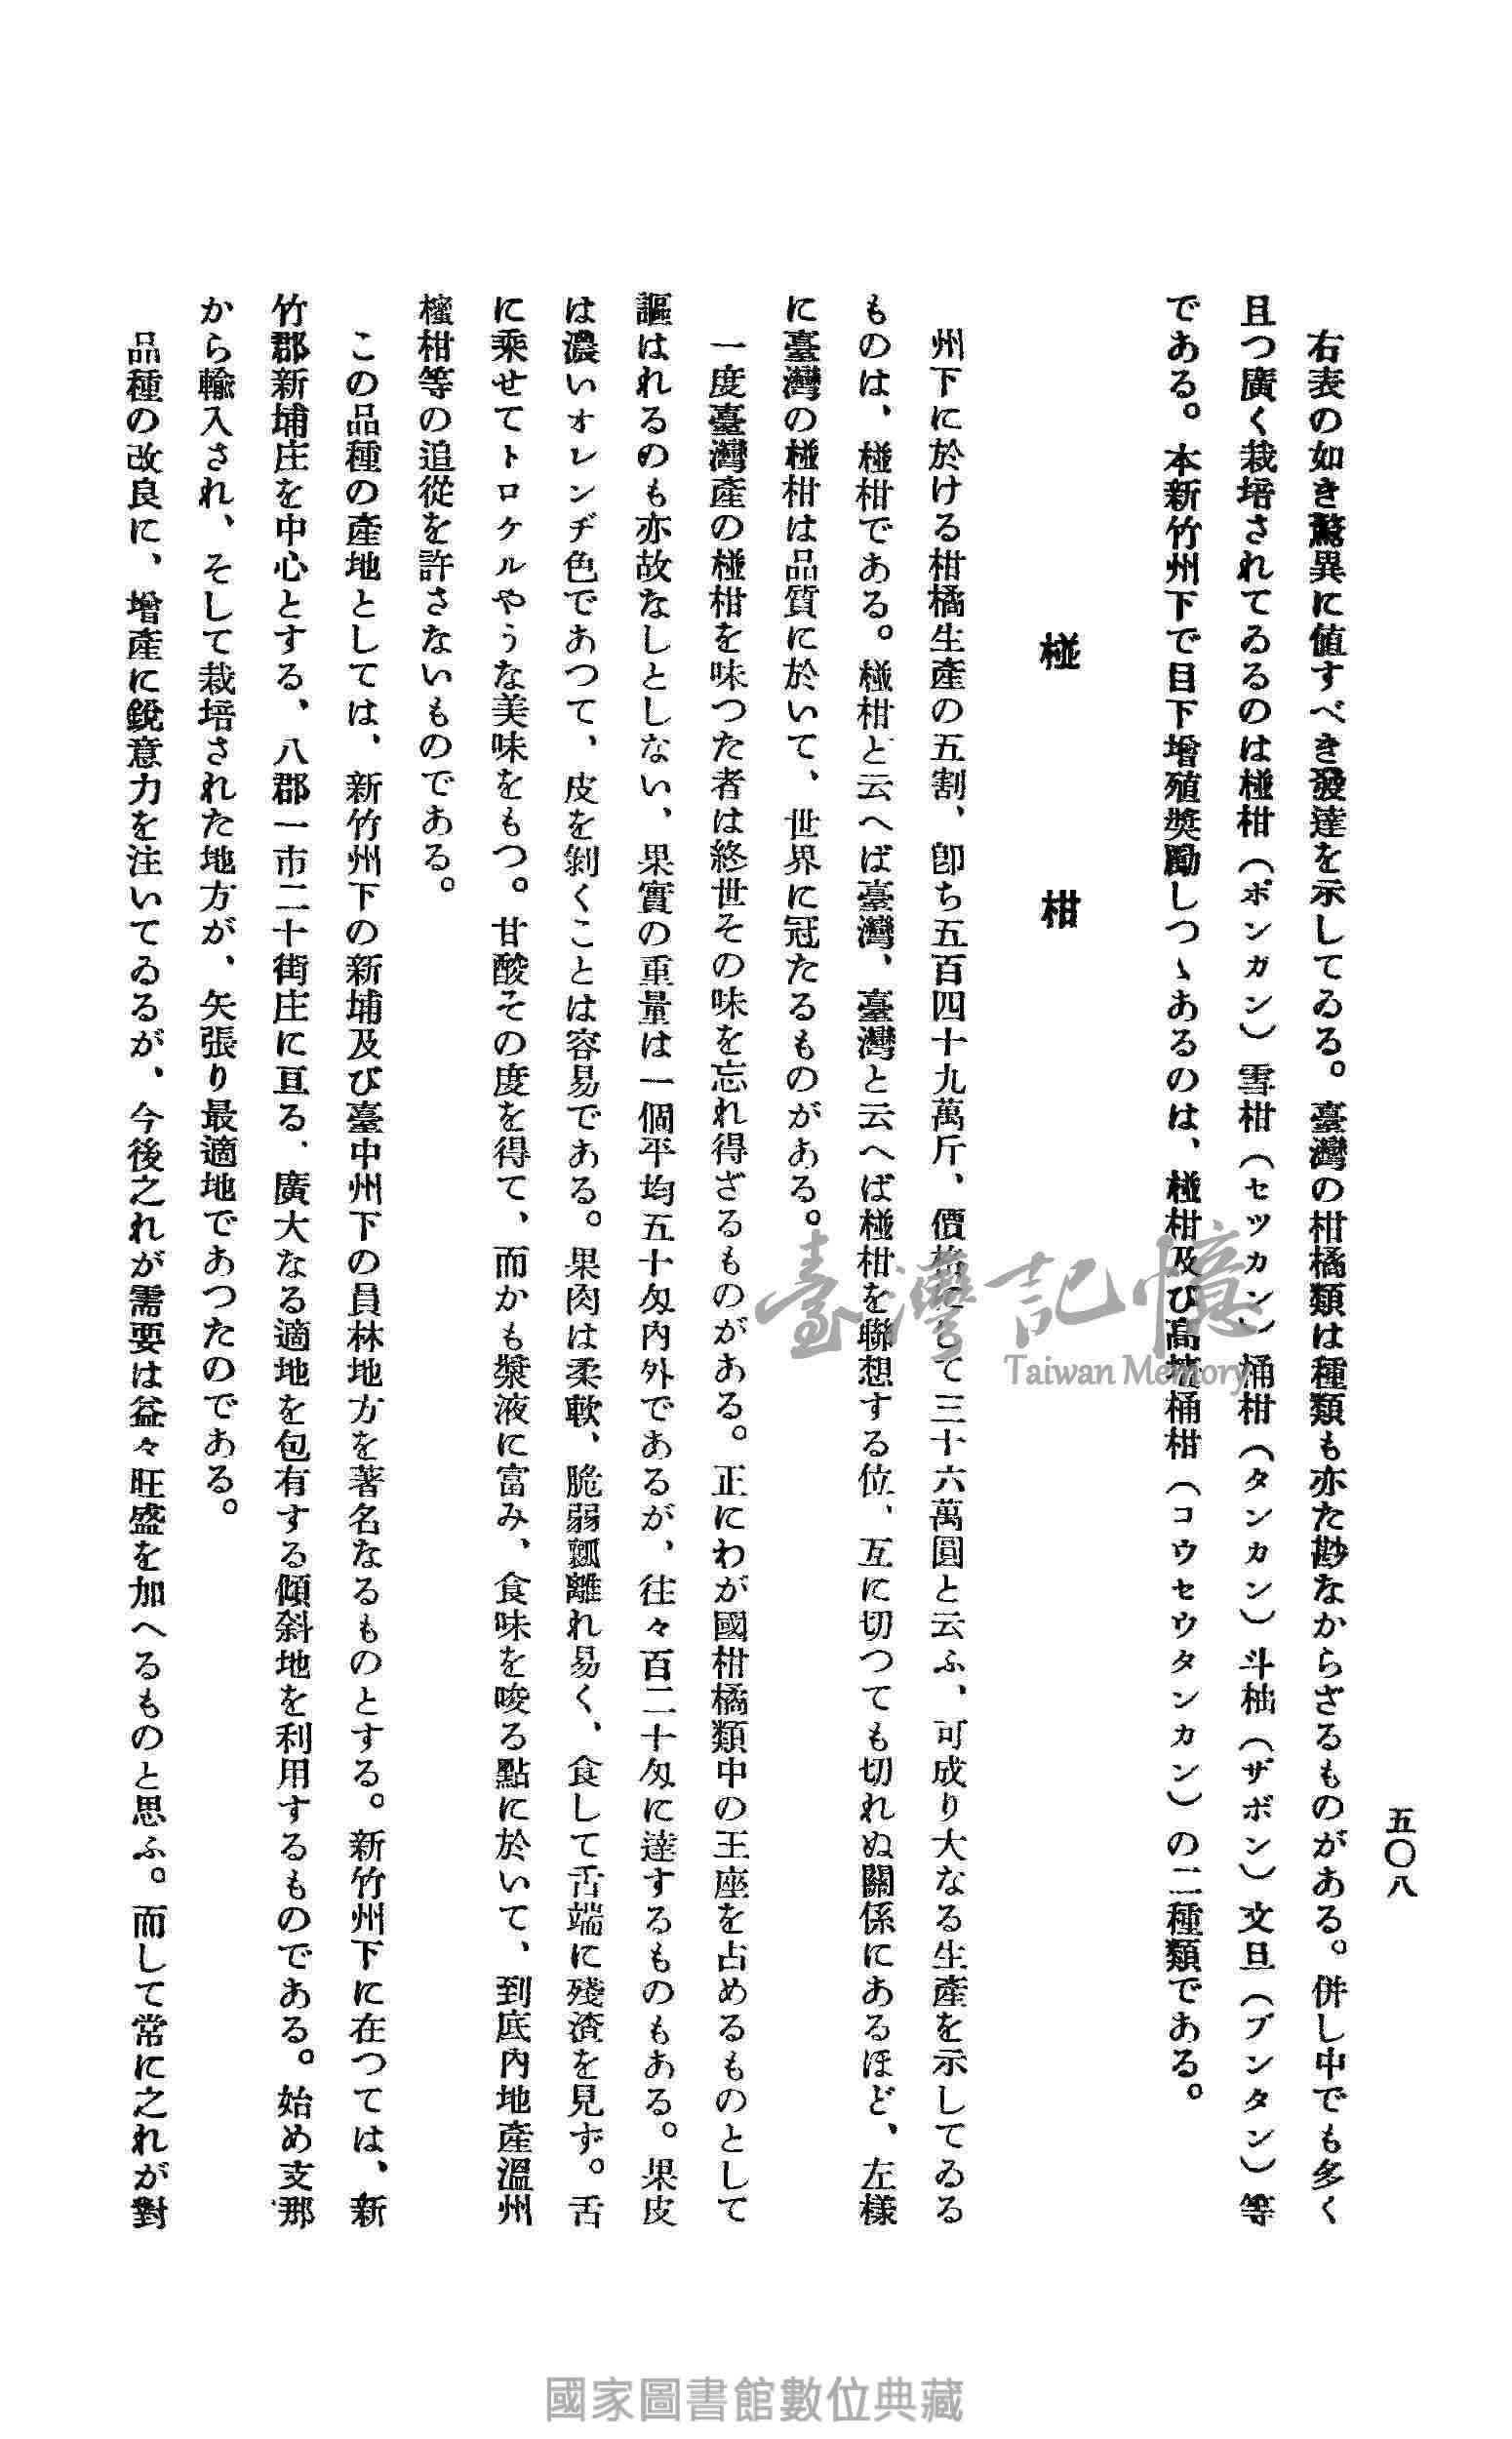 五〇八
右表の如き驚異に値すべき發達を示してゐる。臺灣の柑橘類は種類も亦た尠なからざるものがある。併し中でも多く
且つ廣く栽培されてゐるのは椪柑（ポンカン）雪柑（セツカン）桶柑（タンカン）斗柚（ザボン）文旦（ブンタン）等
である。本新竹州下で目下增殖奬勵しつゝあるのは、椪柑及び高墻桶柑（コウセウタンカン）の二種類である。
椪柑
州下に於ける柑橘生產の五割、卽ち五百四十九萬斤、價格にして三十六萬圓と云ふ、可成り大なる生產を示してゐる
ものは、椪柑である。椪柑と云へば臺灣、臺灣と云へば椪柑を聯想する位、互に切つても切れぬ關係にあるほど、左樣
に臺灣の椪柑は品質に於いて、世界に冠たるものがある。
一度臺灣產の椪柑を味つた者は終世その味を忘れ得ざるものがある。正にわが國柑橘類中の王座を占めるものとして
謳はれるのも亦故なしとしない、果實の重量は一個平均五十匁內外であるが、往々百二十匁に達するものもある。果皮
は濃いオレンヂ色であつて、皮を剝くことは容易である。果肉は柔軟、脆弱瓤離れ易く、食して舌端に殘渣を見ず。舌
に乘せてトロケルやうな美味をもつ。甘酸その度を得て、而かも漿液に富み、食味を唆る點に於いて、到底內地產溫州
蜜柑等の追從を許さないものである。
この品種の產地としては、新竹州下の新埔及び臺中州下の員林地方を著名なるものとする。新竹州下に在つては、新
竹郡新埔庄を中心とする、八郡一市二十街庄に亘る、廣大なる適地を包有する傾斜地を利用するものである。始め支那
から輸入され、そして栽培された地方が、矢張り最適地であつたのである。
品種の改良に、增產に銳意力を注いてゐるが、今後之れが需要は益々旺盛を加へるものと思ふ。而して常に之れが對
臺灣記憶
Taiwan Memory
國家圖書館數位典藏